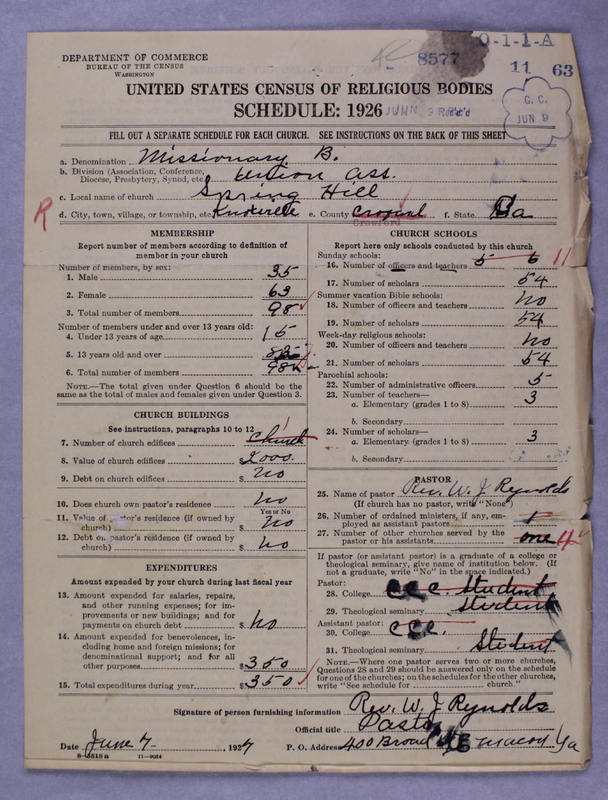 DEPARTMENT OF COMMERCE
BUREAU OF THE CENSUS
WASHINGTON
8577
0-1-1-A
11 63
UNITED STATES CENSUS OF RELIGIOUS BODIES
SCHEDULE: 1926
C. C.
JUN 9
FILL OUT A SEPARATE SCHEDULE FOR EACH CHURCH. SEE INSTRUCTIONS ON THE BACK OF THIS SHEET
a. Denomination Missionary B.
b. Division (Association, Conference, Diocese, Presbytery, Synod, etc. Union Ass.
c. Local name of church Spring Hill
R
d. City, town, village, or township, etc. Knoxville e. County Crofard f. State Ga
Crawford
MEMBERSHIP
Report number of members according to definition of
member in your church
Number of members, by sex:
1. Male 35
2. Female 63
3. Total number of members 98
Number of members under and over 13 years old:
4. Under 13 years of age 15
5. 13 years old and over
6. Total number of members 98
NOTE.—The total given under Question 6 should be the
same as the total of males and females given under Question 3.
CHURCH BUILDINGS
See instructions, paragraphs 10 to 12
7. Number of church edifices Church 1
8. Value of church edifices $ 2000.
9. Debt on church edifices $ no
10. Does church own pastor's residence no
Yes or No
11. Value of pastor's residence (if owned by
church) $ no
12. Debt on pastor's residence (if owned by
church) $ no
EXPENDITURES
Amount expended by your church during last fiscal year
13. Amount expended for salaries, repairs,
and other running expenses; for im-
provements or new buildings; and for
payments on church debt $ no
14. Amount expended for benevolences, in-
cluding home and foreign missions; for
denominational support; and for all
other purposes $ 350
15. Total expenditures during year $ 350
CHURCH SCHOOLS
Report here only schools conducted by this church
Sunday schools:
16. Number of officers and teachers 5 6 11
17. Number of scholars 54
Summer vacation Bible schools:
18. Number of officers and teachers no
19. Number of scholars 54
Week-day religious schools:
20. Number of officers and teachers no
21. Number of scholars 54
Parochial schools:
22. Number of administrative officers 5
23. Number of teachers—
a. Elementary (grades 1 to 8) 3
b. Secondary
24. Number of scholars—
a. Elementary (grades 1 to 8) 3
b. Secondary
PASTOR
25. Name of pastor Rev. W. J. Reynolds
(If church has no pastor, write "None")
26. Number of ordained ministers, if any, em-
ployed as assistant pastors 1
27. Number of other churches served by the
pastor or his assistants one 4
If pastor (or assistant pastor) is a graduate of a college or
theological seminary, give name of institution below. (If
not a graduate, write "No" in the space indicated.)
Pastor:
28. College CCC. Student
29. Theological seminary Student
Assistant pastor:
30. College CCC.
31. Theological seminary Student
NOTE.—Where one pastor serves two or more churches,
Questions 28 and 29 should be answered only on the schedule
for one of the churches; on the schedules for the other churches,
write "See schedule for church."
Signature of person furnishing information Rev. W. J. Reynolds
Official title Pastor
Date June 7, 1927 P. O. Address 400 Broad Macon Ga
8-5518a 11-9034